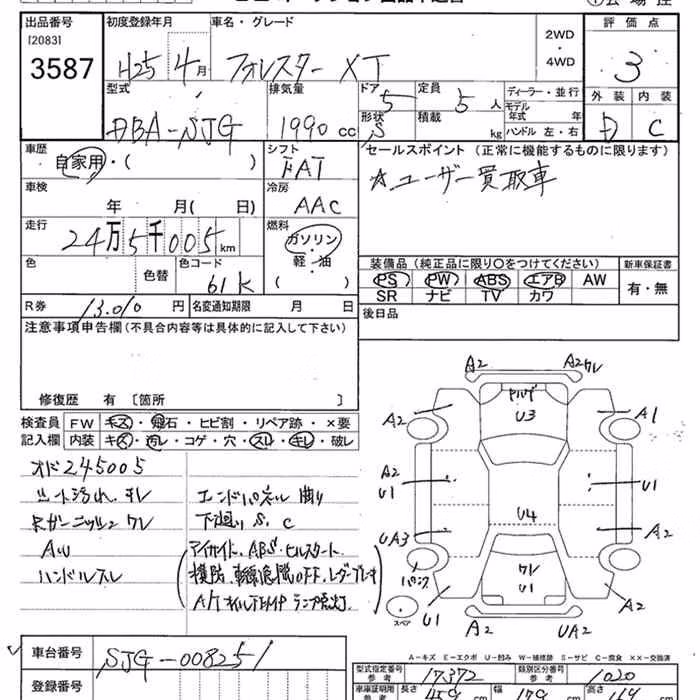 出品番号 初度登録年月 車名・グレード 評価点
[2083] 2WD
3587 H25 4月 フォレスター XT ・ 3
4WD
型式 排気量 ドア 定員 ディーラー・並行 外装 内装
5 5人 モデル年式 年
DBA-SJG 1990cc 形状 S 積載 kg ハンドル 左・右 D C
車歴 シフト セールスポイント (正常に機能するものに限ります)
自家用・( ) FAT ☆ユーザー買取車
車検 冷房
年 月( 日) AAC
走行 燃料
24万5千005km ガソリン
色 色替 色コード 軽・油 装備品 (純正品に限り○をつけてください) 新車保証書
61K ( ) PS PW ABS エアB AW 有・無
SR ナビ TV カワ
R券 13,010円 名変通知期限 月 日 後日品
注意事項申告欄 (不具合内容等は具体的に記入して下さい)
修復歴 有〔箇所 〕
検査員 FW キズ・飛石・ヒビ割・リペア跡・×要
記入欄 内装 キズ・汚レ・コゲ・穴・スレ・キレ・破レ
オド245005
シート汚れ、キレ エンドパネル曲り
Rガーニッシュ ワレ 下廻り S、C
AW アイサイト、ABS・ヒルスタート
ハンドルスレ
A/TオイルTEMP ランプ点灯
A2 A2ワレ
U3
A2 A1
A2
U1 U1
U4
UA3 A2
ワレ
U1
U1 A2
スペア
A2 UA2
A-キズ E-エクボ U-凹み W-補修跡 S-サビ C-腐食 ××-交換済
車台番号 SJG-008251
型式指定番号 参考 17372 類別区分番号 参考 1020
登録番号
車庫証明用 参考 長さ 459cm 幅 179cm 高さ